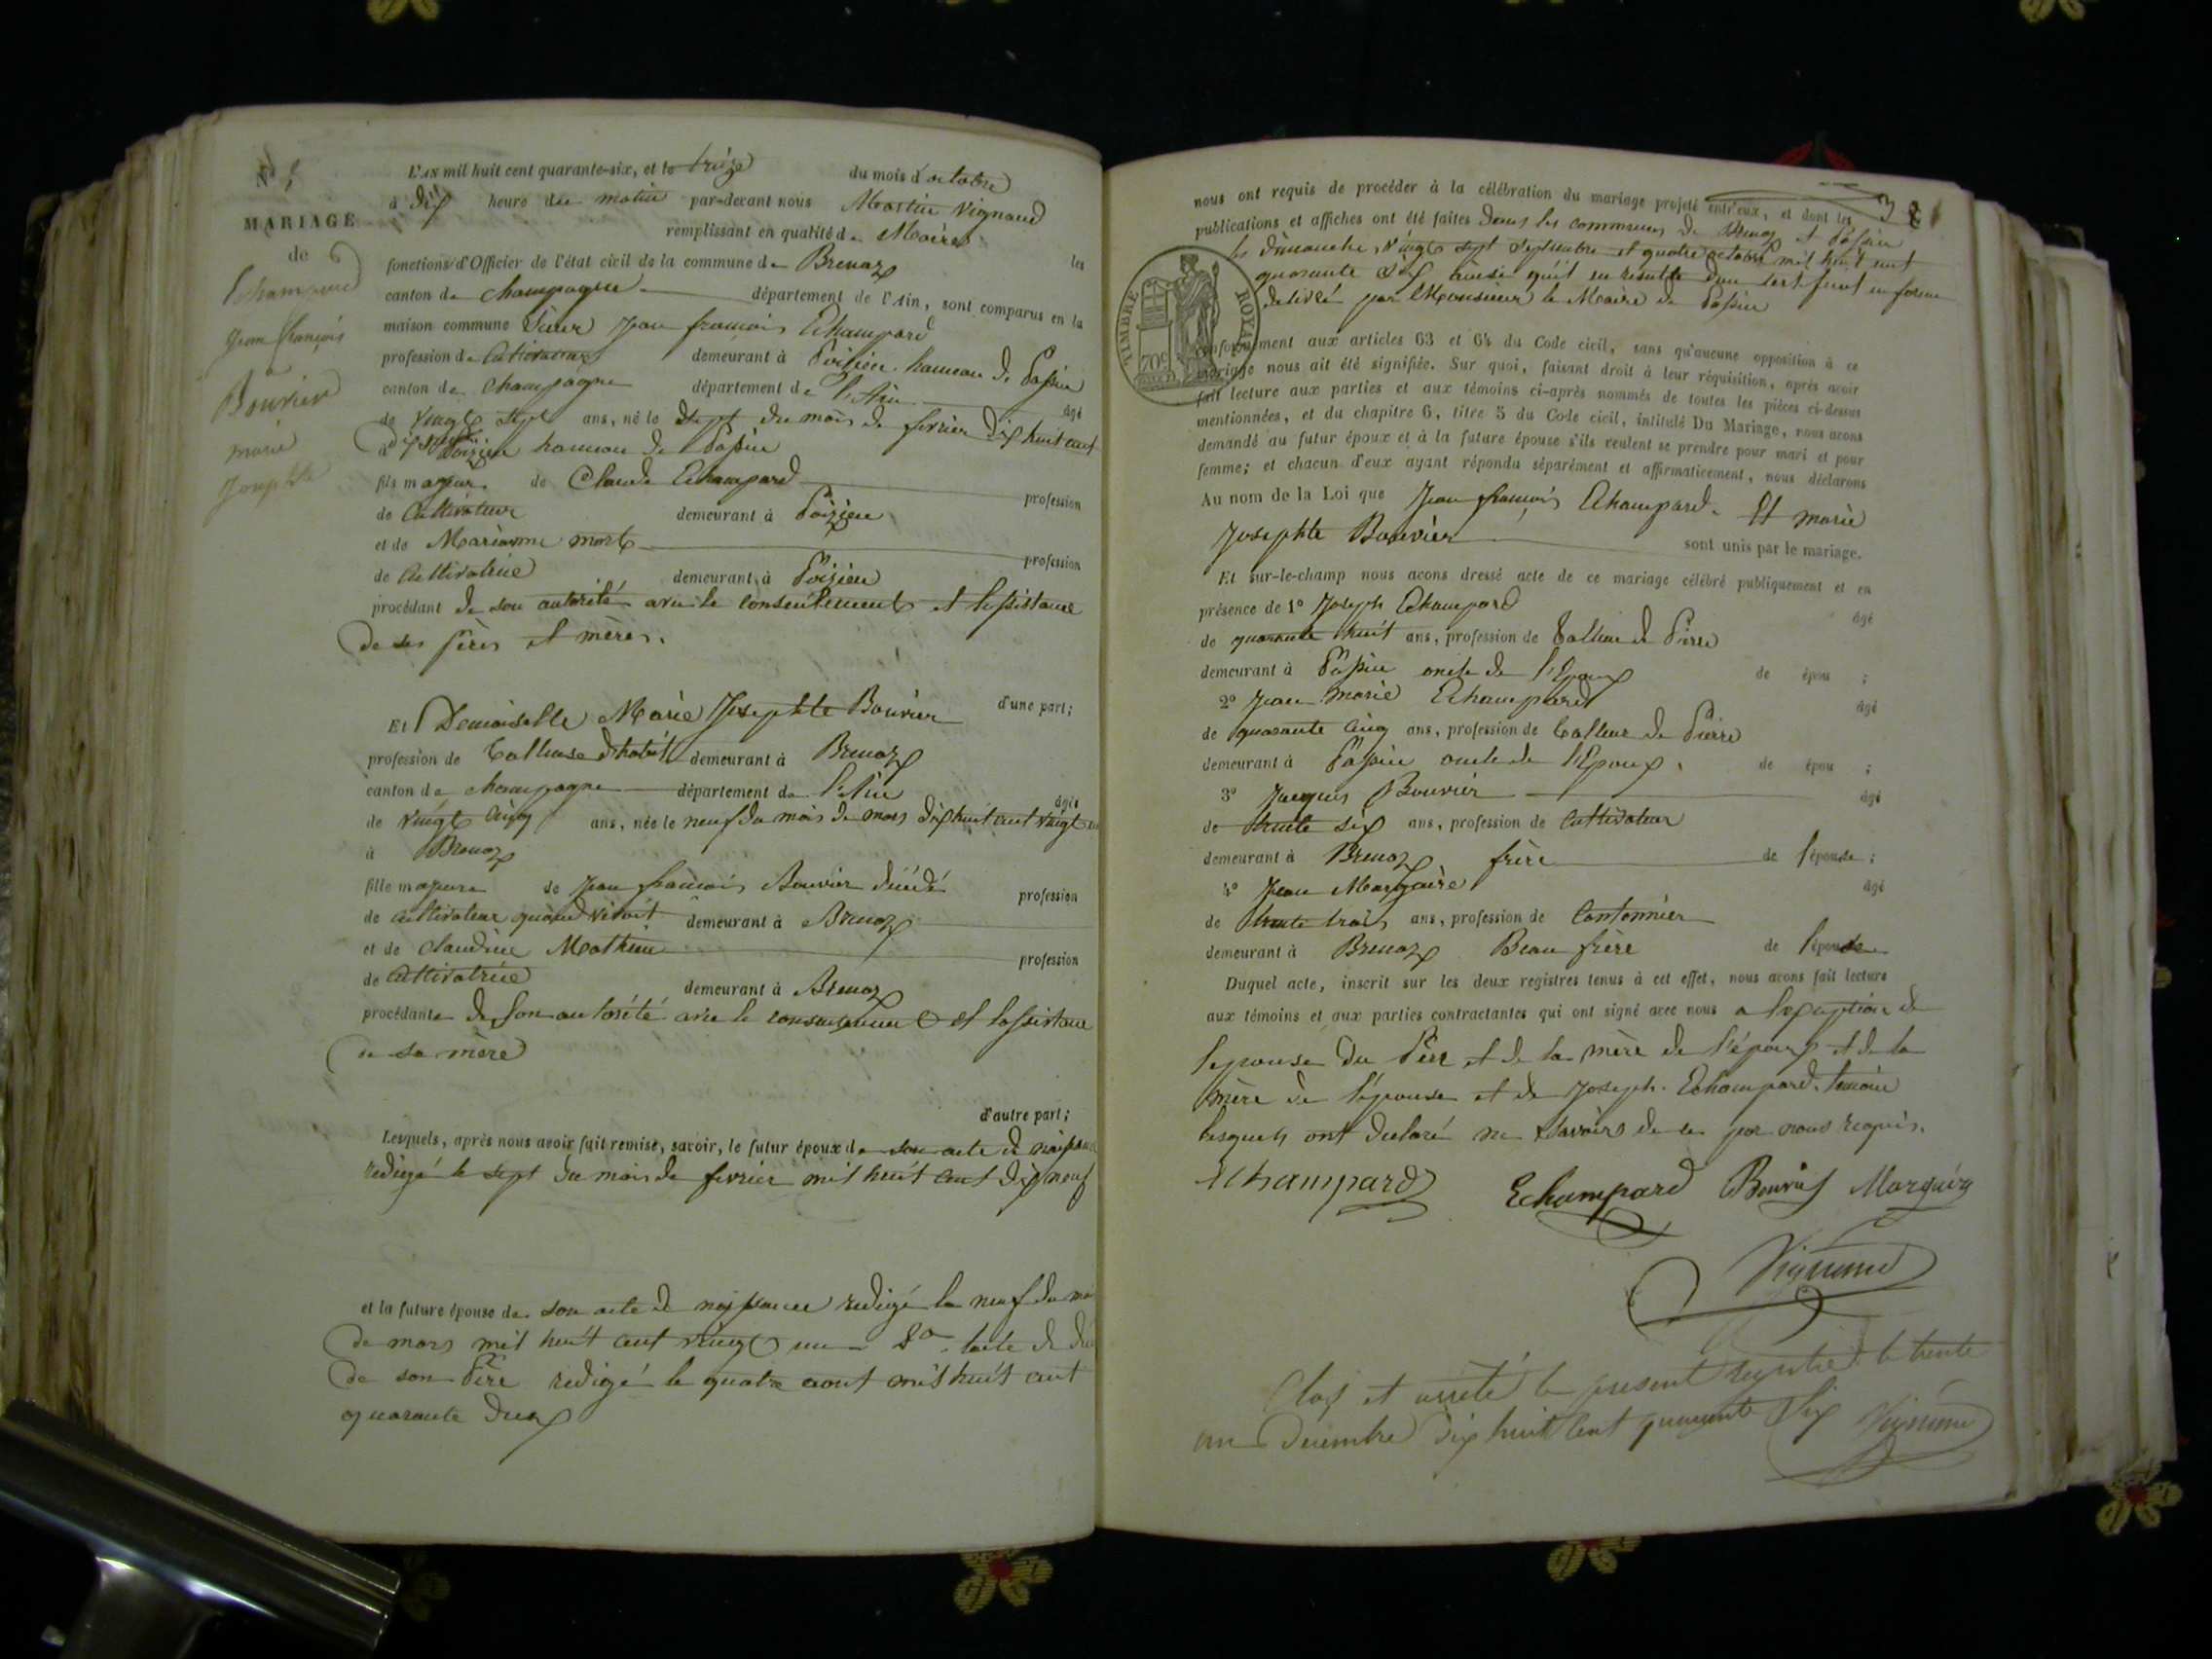 N°
MARIAGE
de
Echampard
Jean françois
&
Bouvier
marie
Josephte
L'AN mil huit cent quarante-six, et le treize du mois d'octobre
à dix heure du matin par-devant nous Martin Vignand
remplissant en qualité de Maire les
fonctions d'Officier de l'état civil de la commune de Brenaz
canton de champagne département de l'Ain, sont comparus en la
maison commune Sieur Jean francois Echampard
profession de Cultivateur demeurant à Poizieu hameau de Passin
canton de Champagne département de l'Ain âgé
de vingt sept ans, né le sept du mois de fevrier dix huit cent
dix neuf à Poizieu hameau de Passin
fils majeur de Claude Echampard profession
de Cultivateur demeurant à Poizieu
et de Marianne mort profession
de Cultivatrice demeurant à Poizieu
procédant de son autorité avec le consentement et lassistance
de ses père et mère.
d'une part;
Et Demoiselle Marie Josephte Bouvier
profession de Tailleuse dhabit demeurant à Brenaz
canton de champagne département de l'Ain âgée
de vingt cinq ans, née le neuf du mois de mars dix huit cent vingt un
à Brenaz
fille majeure de Jean francois Bouvier décédé profession
de cultivateur quand vivait demeurant à Brenaz
et de claudine Mathieu profession
de Cultivatrice demeurant à Brenaz
procédante de son autorité avec le consentement et lassistance
de sa mère
d'autre part;
Lesquels, après nous avoir fait remise, savoir, le futur époux de son acte de naissance
redigé le sept du mois de fevrier mil huit cent dix neuf
et la future épouse de son acte de naissance redigé le neuf du mois
de mars mil huit cent vingt un 2° lacte de
de son Père redigé le quatre aout mil huit cent
quarante deux
nous ont requis de procéder à la célébration du mariage projeté entr'eux, et dont les
publications et affiches ont été faites dans les communes de Brenaz et Passin
les dimanche vingt sept septembre et quatre octobre mil huit cent
quarante six ainsi quit en resulte dun certificat en forme
delivré par Monsieur le Maire de Passin
TIMBRE ROYAL
70c
conformément aux articles 63 et 64 du Code civil, sans qu'aucune opposition à ce
mariage nous ait été signifiée. Sur quoi, faisant droit à leur réquisition, après avoir
fait lecture aux parties et aux témoins ci-après nommés de toutes les pièces ci-dessus
mentionnées, et du chapitre 6, titre 5 du Code civil, intitulé Du Mariage, nous avons
demandé au futur époux et à la future épouse s'ils veulent se prendre pour mari et pour
femme; et chacun d'eux ayant répondu séparément et affirmativement, nous déclarons
Au nom de la Loi que Jean francois Echampard Et marie
Josephte Bouvier sont unis par le mariage.
Et sur-le-champ nous avons dressé acte de ce mariage célébré publiquement et en
présence de 1° Joseph Echampard âgé
de quarante huit ans, profession de Tailleur de Pierre
demeurant à Passin oncle de l'Epoux de épou ;
2° Jean marie Echampard âgé
de quarante cinq ans, profession de tailleur de Pierre
demeurant à Passin oncle de l'Epoux. de épou ;
3° Jacques Bouvier âgé
de trente six ans, profession de Cultivateur
demeurant à Brenaz frère de l'épouse ;
4° Jean Marguire âgé
de trente trois ans, profession de Cantonnier
demeurant à Brenaz Beau frère de l'épouse
Duquel acte, inscrit sur les deux registres tenus à cet effet, nous avons fait lecture
aux témoins et aux parties contractantes qui ont signé avec nous a lexception de
lepouse du Père et de la mère de l'époux et de la
mère de l'épouse et de Joseph Echampard temoin
lesquels ont declaré ne savoir de ce par nous requis.
Echampard Echampard Bouvier Marguire
Vignand
Clos et arrêté le present registre le trente
un Decembre dix huit cent quarante six Vignand